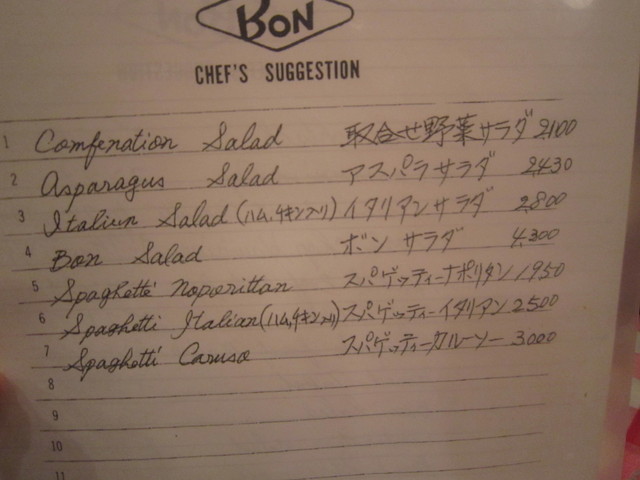 BON
CHEF'S SUGGESTION
1 Comfenation Salad 取合せ野菜サラダ 2100
2 Asparagus Salad アスパラサラダ 2430
3 Italiun Salad (ハム,チキン入り) イタリアンサラダ 2800
4 Bon Salad ボンサラダ 4300
5 Spaghetti Noporittan スパゲッティーナポリタン 1950
6 Spaghetti Italian (ハム,チキン入り) スパゲッティーイタリアン 2500
7 Spaghetti Caruso スパゲッティーカルーソー 3000
8
9
10
11